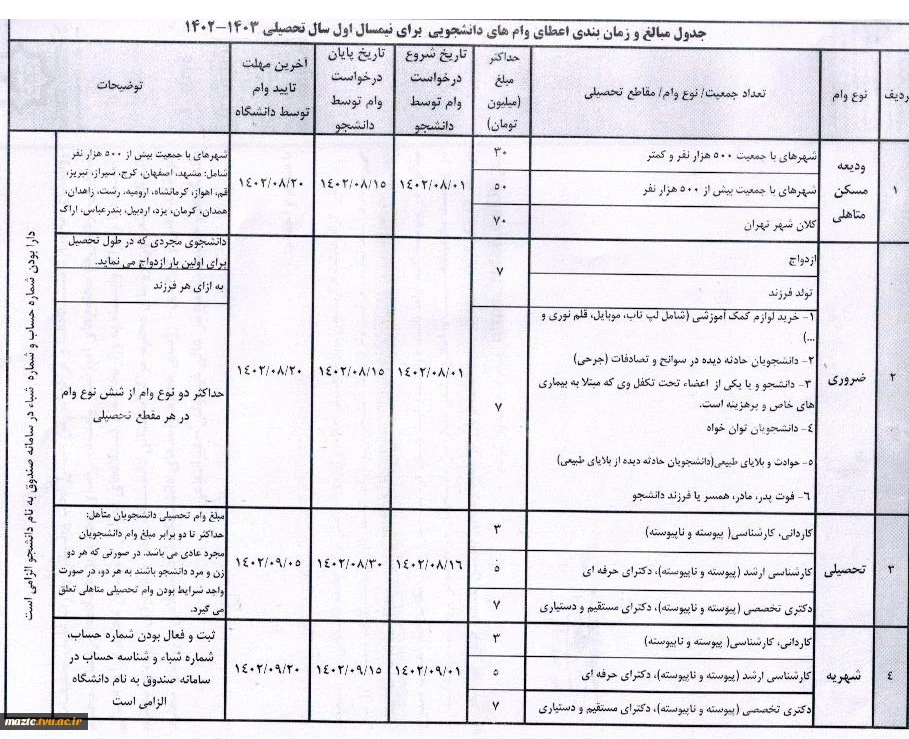 جدول مبالغ و زمان بندی اعطای وام های دانشجویی برای نیمسال اول سال تحصیلی ۱۴۰۳-۱۴۰۲
ردیف
نوع وام
تعداد جمعیت/ نوع وام/ مقاطع تحصیلی
حداکثر
مبلغ
(میلیون
تومان)
تاریخ شروع
درخواست
وام توسط
دانشجو
تاریخ پایان
درخواست
وام توسط
دانشجو
آخرین مهلت
تایید وام
توسط دانشگاه
توضیحات
۱
ودیعه
مسکن
متاهلی
شهرهای با جمعیت ۵۰۰ هزار نفر و کمتر
۳۰
شهرهای با جمعیت بیش از ۵۰۰ هزار نفر
۵۰
کلان شهر تهران
۷۰
۱۴۰۲/۰۸/۰۱
۱۴۰۲/۰۸/۱۵
۱۴۰۲/۰۸/۲۰
شهرهای با جمعیت بیش از ۵۰۰ هزار نفر
شامل: مشهد، اصفهان، کرج، شیراز، تبریز،
قم، اهواز، کرمانشاه، ارومیه، رشت، زاهدان،
همدان، کرمان، یزد، اردبیل، بندرعباس، اراک
۲
ضروری
ازدواج
تولد فرزند
۷
دانشجوی مجردی که در طول تحصیل
برای اولین بار ازدواج می نماید.
به ازای هر فرزند
۱- خرید لوازم کمک آموزشی (شامل لپ تاب، موبایل، قلم نوری و
...)
۲- دانشجویان حادثه دیده در سوانح و تصادفات (جرحی)
۳- دانشجو و یا یکی از اعضاء تحت تکفل وی که مبتلا به بیماری
های خاص و پرهزینه است.
۴- دانشجویان توان خواه
۵- حوادث و بلایای طبیعی(دانشجویان حادثه دیده از بلایای طبیعی)
۶- فوت پدر، مادر، همسر یا فرزند دانشجو
۷
۱۴۰۲/۰۸/۰۱
۱۴۰۲/۰۸/۱۵
۱۴۰۲/۰۸/۲۰
حداکثر دو نوع وام از شش نوع وام
در هر مقطع تحصیلی
۳
تحصیلی
کاردانی، کارشناسی( پیوسته و ناپیوسته)
۳
کارشناسی ارشد (پیوسته و ناپیوسته)، دکترای حرفه ای
۵
دکتری تخصصی (پیوسته و ناپیوسته)، دکترای مستقیم و دستیاری
۷
۱۴۰۲/۰۸/۱۶
۱۴۰۲/۰۸/۳۰
۱۴۰۲/۰۹/۰۵
مبلغ وام تحصیلی دانشجویان متأهل:
حداکثر تا دو برابر مبلغ وام دانشجویان
مجرد عادی می باشد. در صورتی که هر دو
زن و مرد دانشجو باشند به هر دو، در صورت
واجد شرایط بودن وام تحصیلی متاهلی تعلق
می گیرد.
۴
شهریه
کاردانی، کارشناسی( پیوسته و ناپیوسته)
۳
کارشناسی ارشد (پیوسته و ناپیوسته)، دکترای حرفه ای
۵
دکتری تخصصی (پیوسته و ناپیوسته)، دکترای مستقیم و دستیاری
۷
۱۴۰۲/۰۹/۰۱
۱۴۰۲/۰۹/۱۵
۱۴۰۲/۰۹/۲۰
ثبت و فعال بودن شماره حساب،
شماره شباء و شناسه حساب در
سامانه صندوق به نام دانشگاه
الزامی است
دارا بودن شماره حساب و شماره شباء در سامانه صندوق به نام دانشجو الزامی است
mazfc.tvu.ac.ir